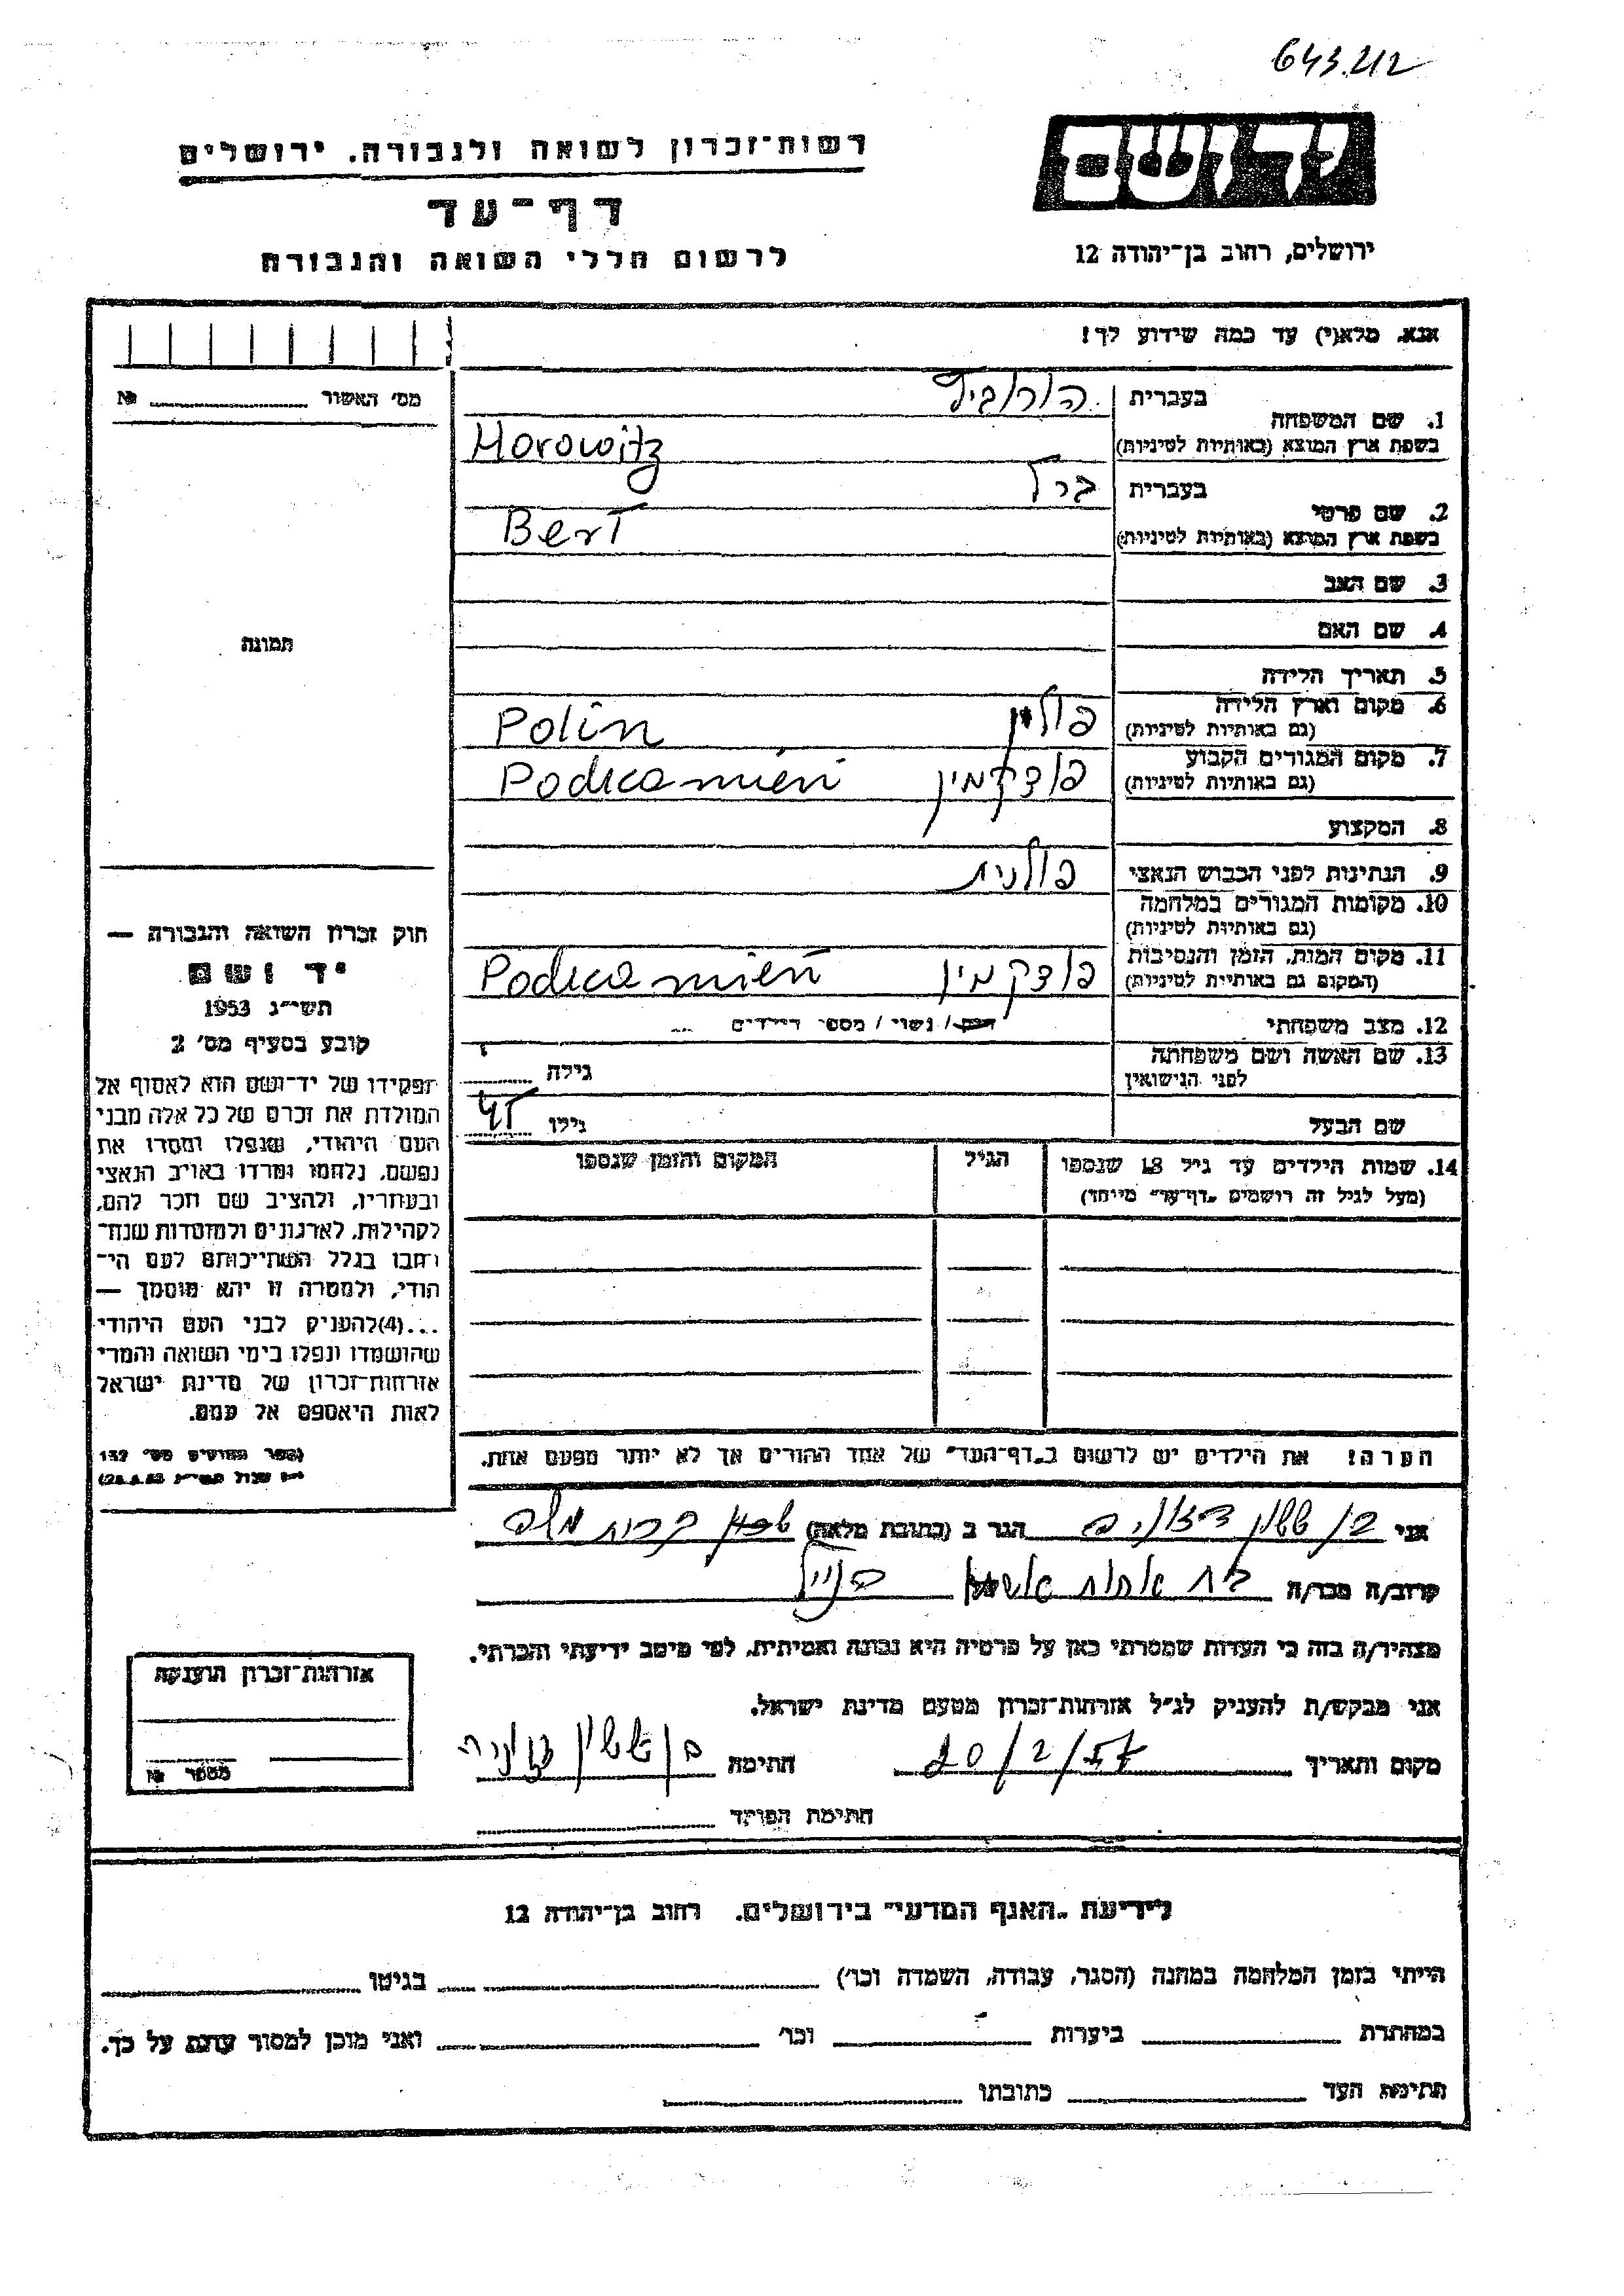 643.212
יד ושם
רשות־זכרון לשואה ולגבורה. ירושלים
דף־עד
לרשום חללי השואה והגבורה
ירושלים, רחוב בן־יהודה 12
אנא. מלא(י) עד כמה שידוע לך!
מס' האשור №
1. שם המשפחה
בעברית
בשפת ארץ המוצא (באותיות לטיניות)
Horowitz
2. שם פרטי
בעברית ברל
בשפת ארץ המוצא (באותיות לטיניות)
Berl
3. שם האב
4. שם האם
תמונה
5. תאריך הלידה
6. מקום וארץ הלידה
(גם באותיות לטיניות)
פולין Polin
7. מקום המגורים הקבוע
(גם באותיות לטיניות)
פודקמין Podkamień
8. המקצוע
9. הנתינות לפני הכבוש הנאצי פולנית
10. מקומות המגורים במלחמה
(גם באותיות לטיניות)
11. מקום המות, הזמן והנסיבות
(המקום גם באותיות לטיניות)
פודקמין Podkamień
12. מצב משפחתי רווק / נשוי / מספר הילדים
13. שם האשה ושם משפחתה
לפני הנישואין
גילה
שם הבעל גילו 45
14. שמות הילדים עד גיל 18 שנספו
(מעל לגיל זה רושמים „דף־עד" מיוחד)
הגיל
המקום והזמן שנספו
הערה! את הילדים יש לרשום ב„דף־העד" של אחד ההורים אך לא יותר מפעם אחת.
חוק זכרון השואה והגבורה —
יד ושם
תשי"ג 1953
קובע בסעיף מס' 2
תפקידו של יד־ושם הוא לאסוף אל
המולדת את זכרם של כל אלה מבני
העם היהודי, שנפלו ומסרו את
נפשם, נלחמו ומרדו באויב הנאצי
ובעוזריו, ולהציב שם וזכר להם,
לקהילות, לארגונים ולמוסדות שנח־
רבו בגלל השתייכותם לעם הי־
הודי, ולמטרה זו יהא מוסמך —
...(4) להעניק לבני העם היהודי
שהושמדו ונפלו בימי השואה והמרי
אזרחות־זכרון של מדינת ישראל
לאות היאספם אל עמם.
(ספר החוקים מס' 132
אני בן ששון הגר ב (כתובת מלאה)
קרוב/ה מכר/ה בת אחות
מצהיר/ה בזה כי העדות שמסרתי כאן על פרטיה היא נכונה ואמיתית, לפי מיטב ידיעתי והכרתי.
אני מבקש/ת להעניק לנ"ל אזרחות־זכרון מטעם מדינת ישראל.
מקום ותאריך חתימה בן ששון
חתימת הפוקד
אזרחות־זכרון הוענקה
מספר №
לידיעת „האגף המדעי" בירושלים. רחוב בן־יהודה 12
הייתי בזמן המלחמה במחנה (הסגר, עבודה, השמדה וכו') בגיטו
במחתרת ביערות וכו' ואני מוכן למסור עדות על כך.
חתימת העד כתובתו